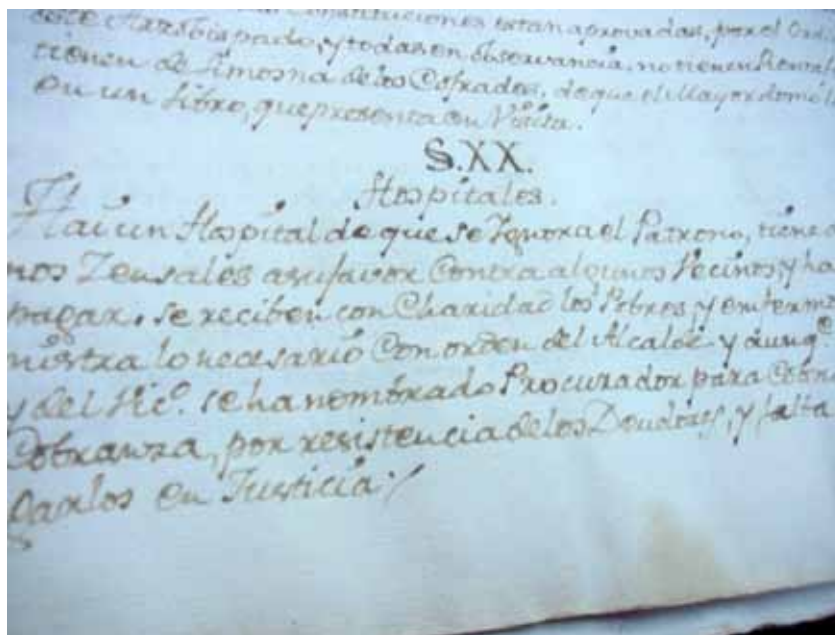 Constituciones estan aprovadas, por el Ordi
este Arzobispado, y todas en observancia, no tienen Renta
tienen de Limosna de los Cofrades, de que el Mayordomo
en un Libro, que presenta en Visita.
S.XX.
Hospitales.
Hai un Hospital de que se Ignora el Patrono, tiene
nos Zensales a su favor Contra algunos Vecinos, y ha
pagar. se reciben con Charidad los Pobres, y enferm
nistra lo necesario Con orden del Alcalde y aunq.e
y del Vic.o se ha nombrado Procurador para Cobr
Cobranza, por resistencia de los Deudores, y falta
garlos en Justicia